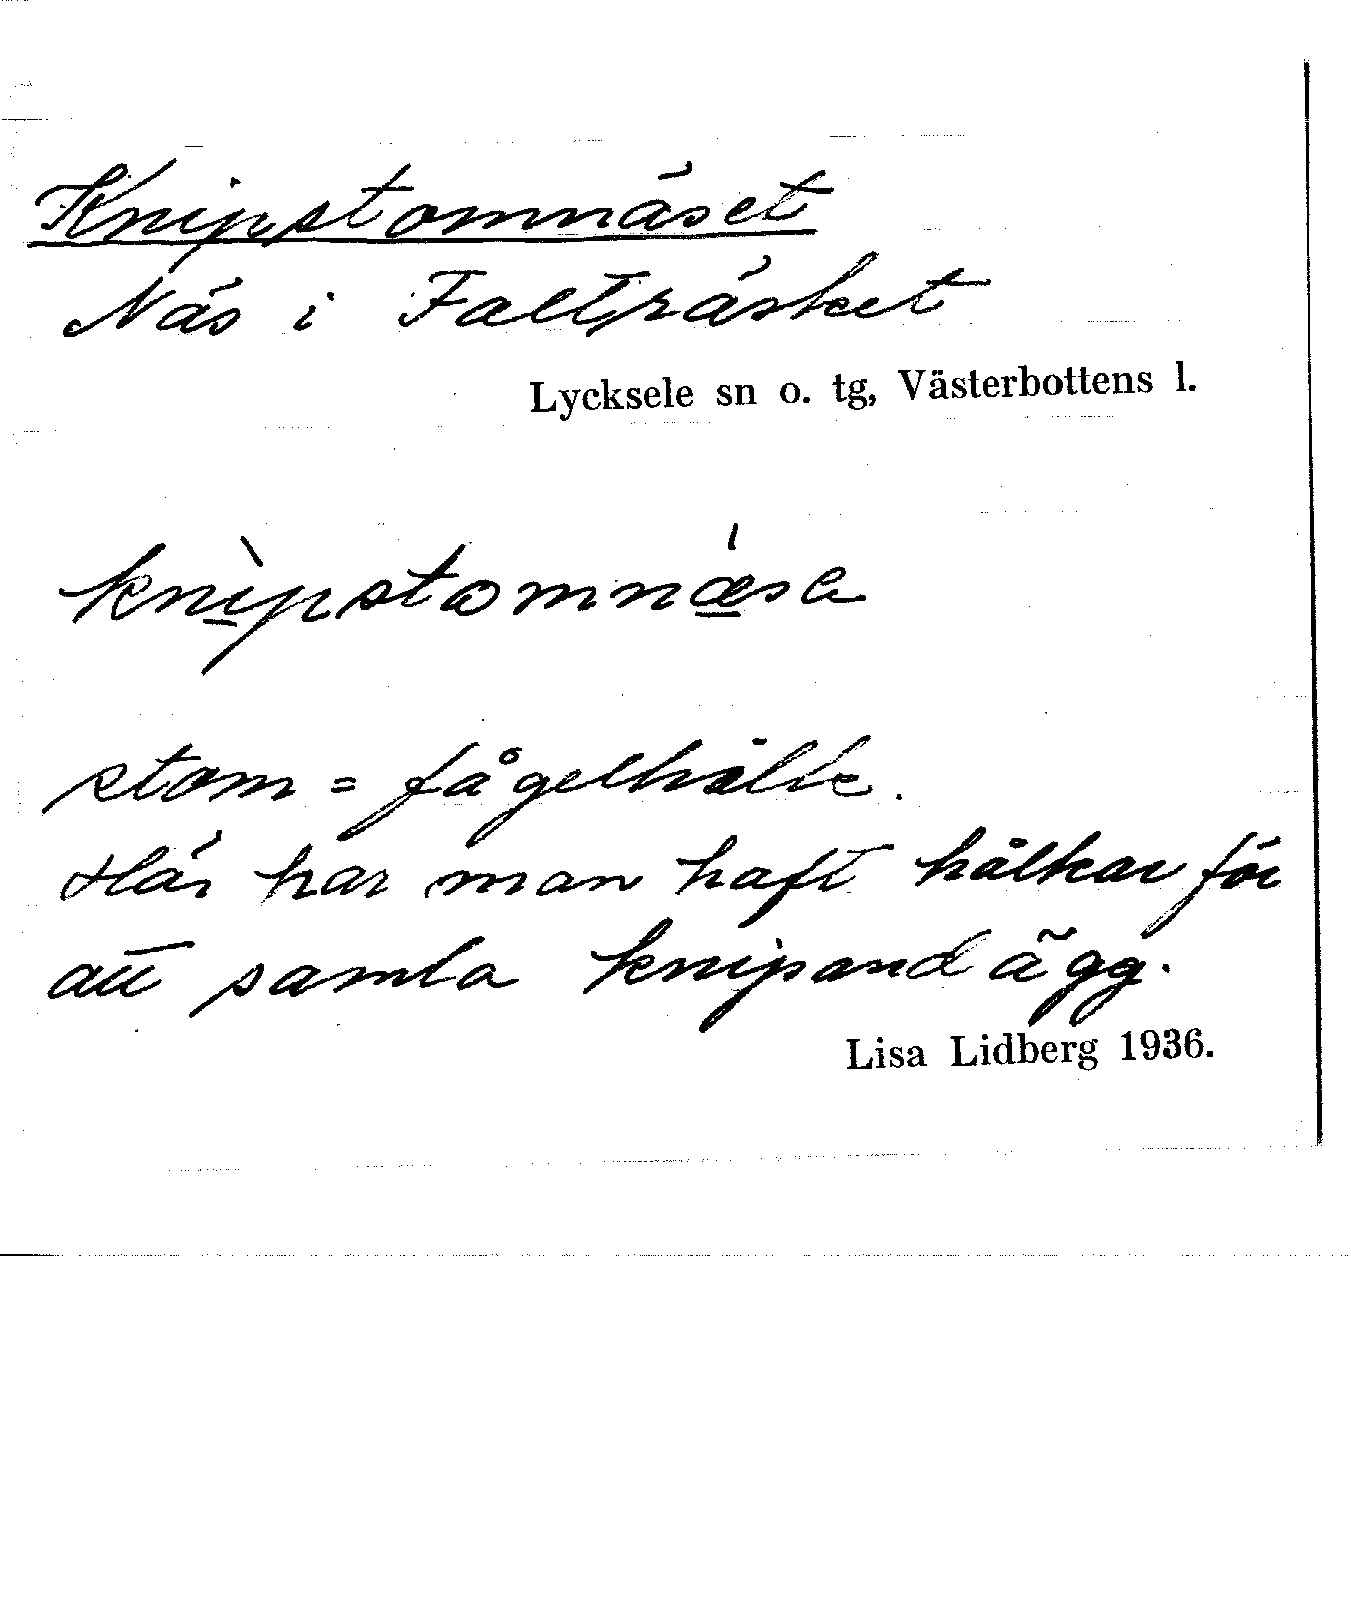 Knipstomnäset
Näs i Fallträsket
Lycksele sn o. tg, Västerbottens l.
knìpstomnǽsa
stom = fågelhålke.
Här har man haft hålkar för
att samla knipandägg.
Lisa Lidberg 1936.